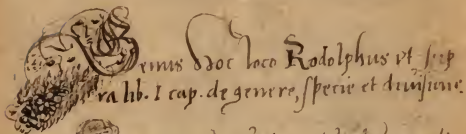 Genus hoc loco Rodolphus ut sup
ra lib. I cap. de genere, specie et divisione